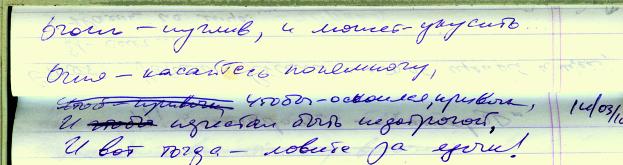 Огонь – пуглив, и может – укусить...
Огня – касайтесь понемногу,
Чтоб – привык, чтобы – освоился, привык,
И чтобы перестал быть недотрогой,
И вот тогда – ловите за